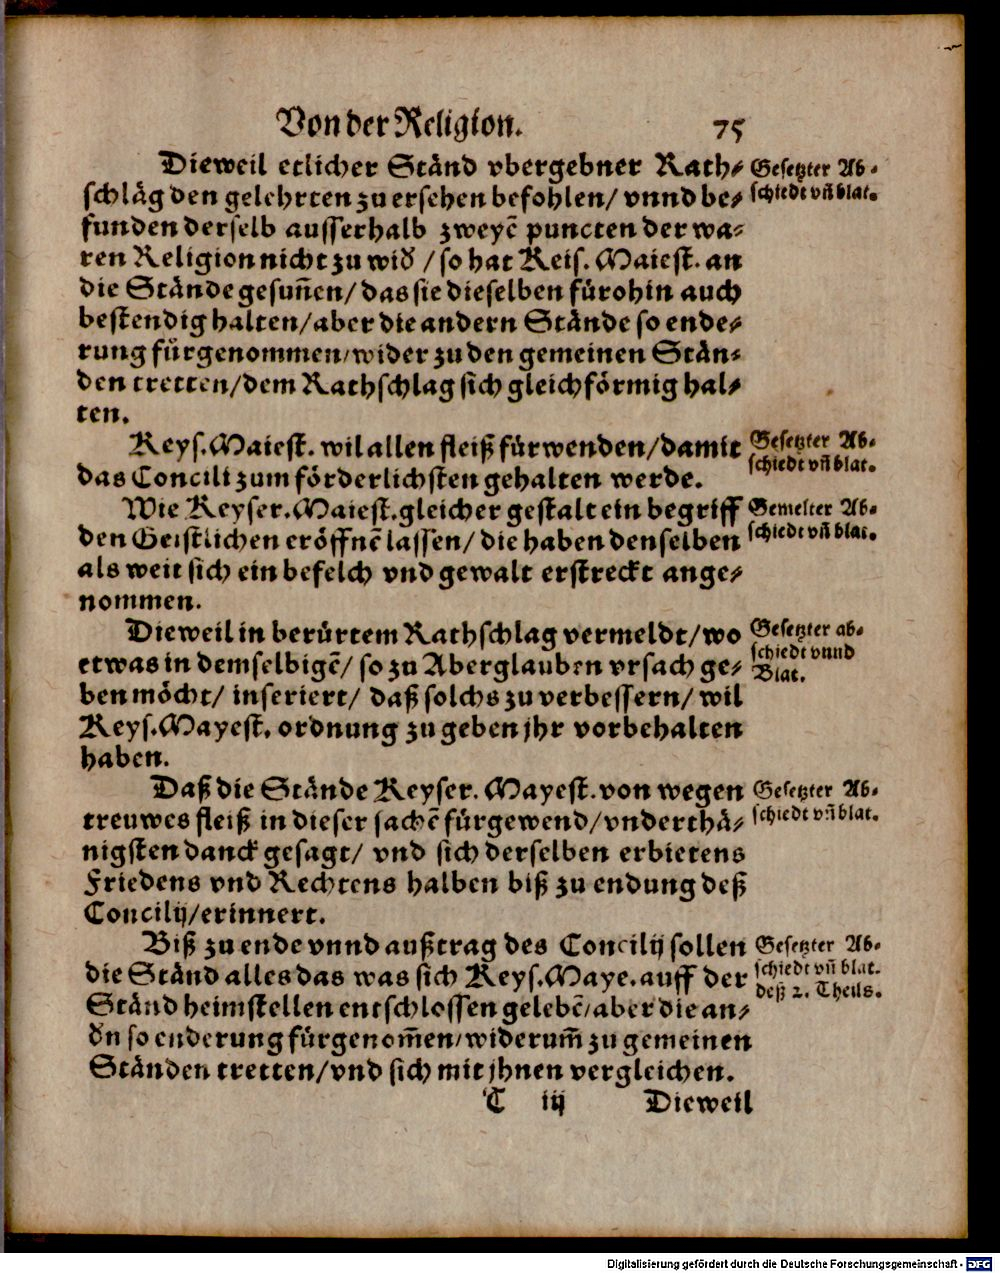 Von der Religion. 75
Dieweil etlicher Ständ vbergebner Rath-
schläg den gelehrten zu ersehen befohlen/ vnnd be-
funden derselb ausserhalb zweyē puncten der wa-
ren Religion nicht zu wid' / so hat Keis. Maiest. an
die Stände gesuñen/ das sie dieselben fürohin auch
bestendig halten/ aber die andern Stände so ende-
rung fürgenommen/ wider zu den gemeinen Stän-
den tretten/ dem Rathschlag sich gleichförmig hal-
ten.
Gesetzter Ab-
schiedt vñ blat.
Keys. Maiest. wil allen fleiß fürwenden/ damit
das Concili zum förderlichsten gehalten werde.
Gesetzter Ab-
schiedt vñ blat.
Wie Keyser. Maiest. gleicher gestalt ein begriff
den Geistlichen eröffnē lassen/ die haben denselben
als weit sich ein befelch vnd gewalt erstreckt ange-
nommen.
Gemelter Ab-
schiedt vñ blat.
Dieweil in berürtem Rathschlag vermeldt/ wo
etwas in demselbigē/ so zu Aberglauben vrsach ge-
ben möcht/ inseriert/ daß solchs zu verbessern/ wil
Keys. Mayest. ordnung zu geben jhr vorbehalten
haben.
Gesetzter ab-
schiedt vnnd
Blat.
Daß die Stände Keyser. Mayest. von wegen
treuwes fleiß in dieser sachē fürgewend/ vnderthä-
nigsten danck gesagt/ vnd sich derselben erbietens
Friedens vnd Rechtens halben biß zu endung deß
Concilij/ erinnert.
Gesetzter Ab-
schiedt vñ blat.
Biß zu ende vnnd außtrag des Concilij sollen
die Ständ alles das was sich Keys. Maye. auff der
Ständ heimstellen entschlossen gelebē/ aber die an-
d'n so enderung fürgenom̄en/ widerum̄ zu gemeinen
Ständen tretten/ vnd sich mit jhnen vergleichen.
Gesetzter Ab-
schiedt vñ blat.
deß 2. Theils.
T iij Dieweil
Digitalisierung gefördert durch die Deutsche Forschungsgemeinschaft - DFG